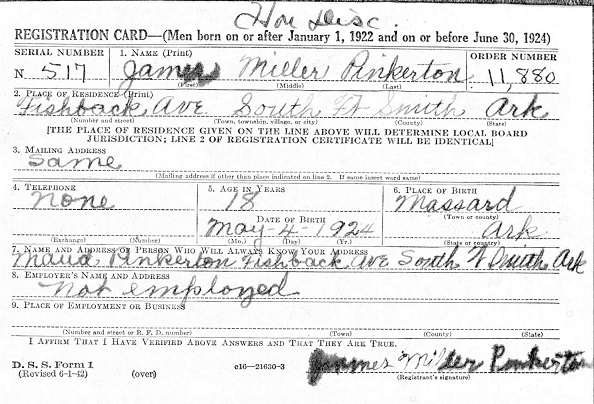 Hon Disc.
REGISTRATION CARD—(Men born on or after January 1, 1922 and on or before June 30, 1924)
SERIAL NUMBER 1. NAME (Print) ORDER NUMBER
N 517 James Miller Pinkerton 11,880
(First) (Middle) (Last)
2. PLACE OF RESIDENCE (Print)
Fishback Ave South Ft Smith Ark
(Number and street) (Town, township, village, or city) (County) (State)
[THE PLACE OF RESIDENCE GIVEN ON THE LINE ABOVE WILL DETERMINE LOCAL BOARD
JURISDICTION; LINE 2 OF REGISTRATION CERTIFICATE WILL BE IDENTICAL]
3. MAILING ADDRESS
Same
(Mailing address if other than place indicated on line 2. If same insert word same)
4. TELEPHONE 5. AGE IN YEARS 6. PLACE OF BIRTH
None 18 Massard
(Town or county)
DATE OF BIRTH
May-4-1924 Ark
(Exchange) (Number) (Mo.) (Day) (Yr.) (State or country)
7. NAME AND ADDRESS OF PERSON WHO WILL ALWAYS KNOW YOUR ADDRESS
Maud Pinkerton Fishback Ave South Ft Smith Ark
8. EMPLOYER'S NAME AND ADDRESS
not employed
9. PLACE OF EMPLOYMENT OR BUSINESS
(Number and street or R. F. D. number) (Town) (County) (State)
I AFFIRM THAT I HAVE VERIFIED ABOVE ANSWERS AND THAT THEY ARE TRUE.
D. S. S. Form 1
(Revised 6-1-42) (over) c16—21630-3 James Miller Pinkerton
(Registrant's signature)